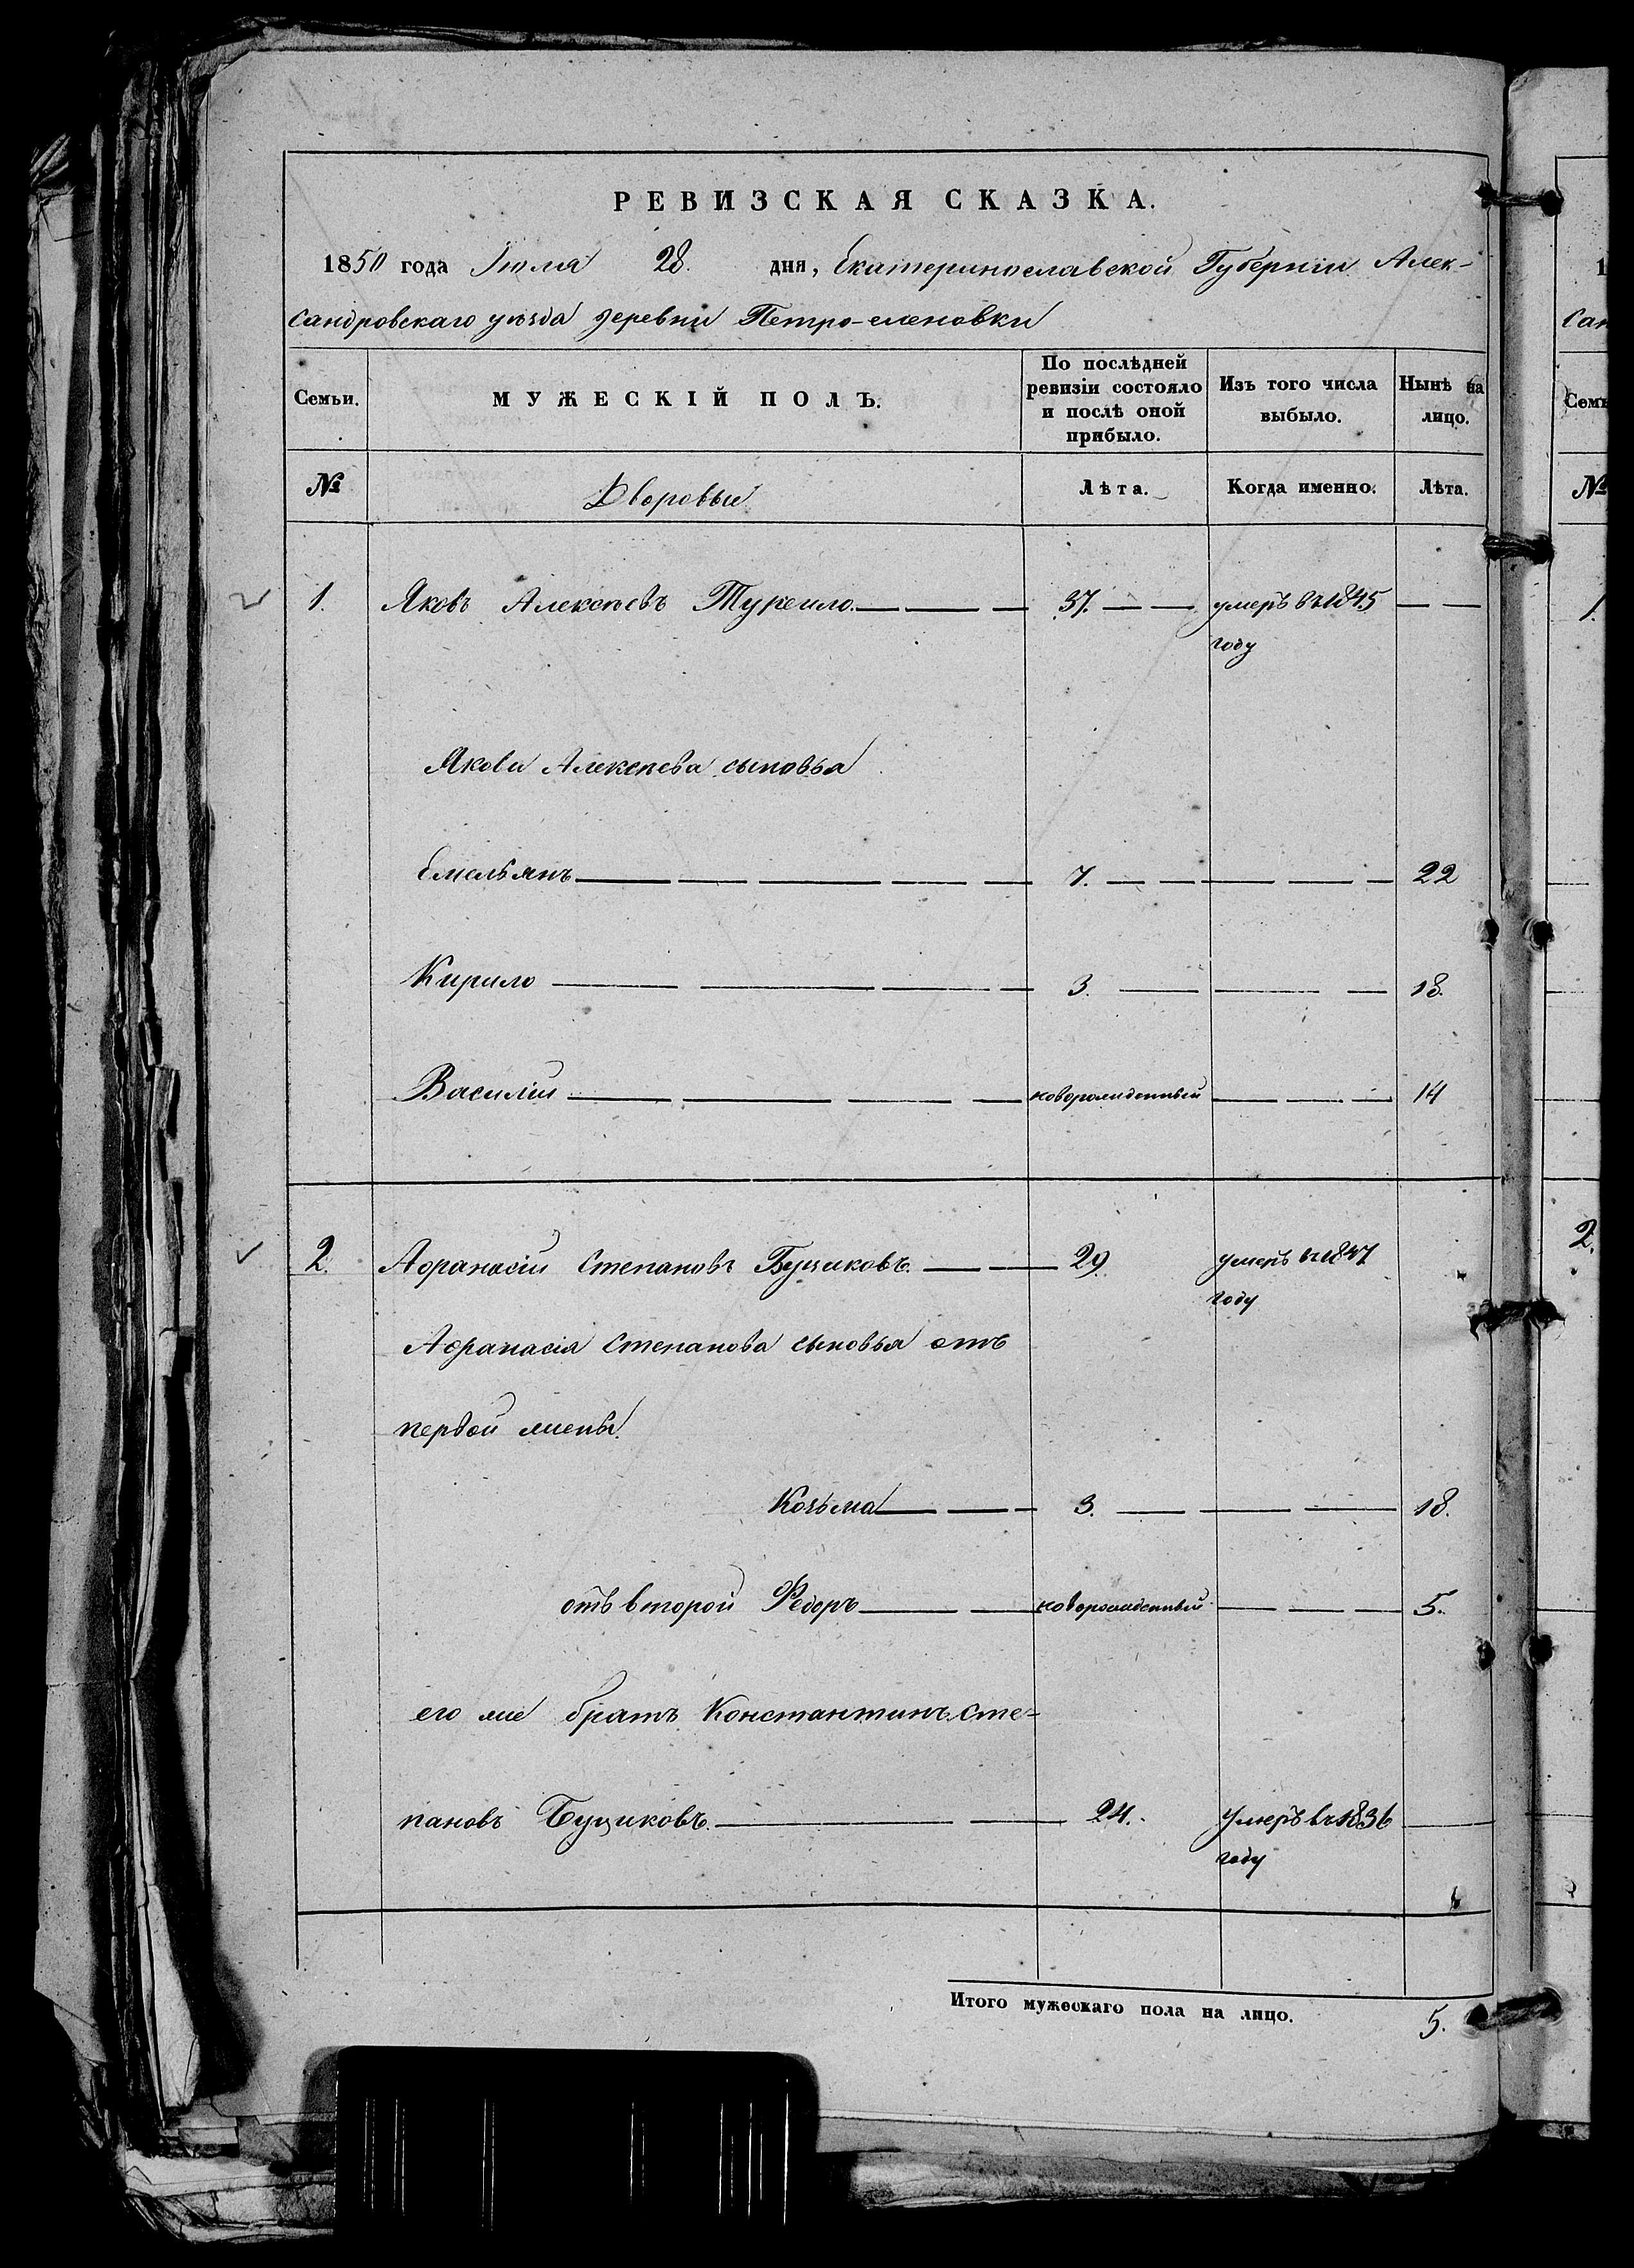 РЕВИЗСКАЯ СКАЗКА.
1850 года Іюля 28. дня, Екатеринославской Губерніи Алек-
сандровскаго уѣзда деревни Петро-еленовки
Семьи.
МУЖЕСКІЙ ПОЛЪ.
По послѣдней
ревизіи состояло
и послѣ оной
прибыло.
Изъ того числа
выбыло.
Нынѣ на
лицо.
№
Дворовыи
Лѣта.
Когда именно.
Лѣта.
1. Яковъ Алексѣевъ 37. умеръ въ 1845
году
Якова Алексѣева сыновья
Емельянъ 7. 22
Кирило 3. 18.
Василій новорожденный 14
2. Афанасій Степановъ Бущиковъ. 29. умеръ въ 1847
году
Афанасія Степанова сыновья отъ
первой жены.
Козьма 3. 18.
отъ второй Федоръ новорожденный 5.
его же братъ Константинъ Сте-
пановъ Бущиковъ. 24. умеръ въ 1836
году
Итого мужескаго пола на лицо. 5.
Сан
Семь
№
1.
2.